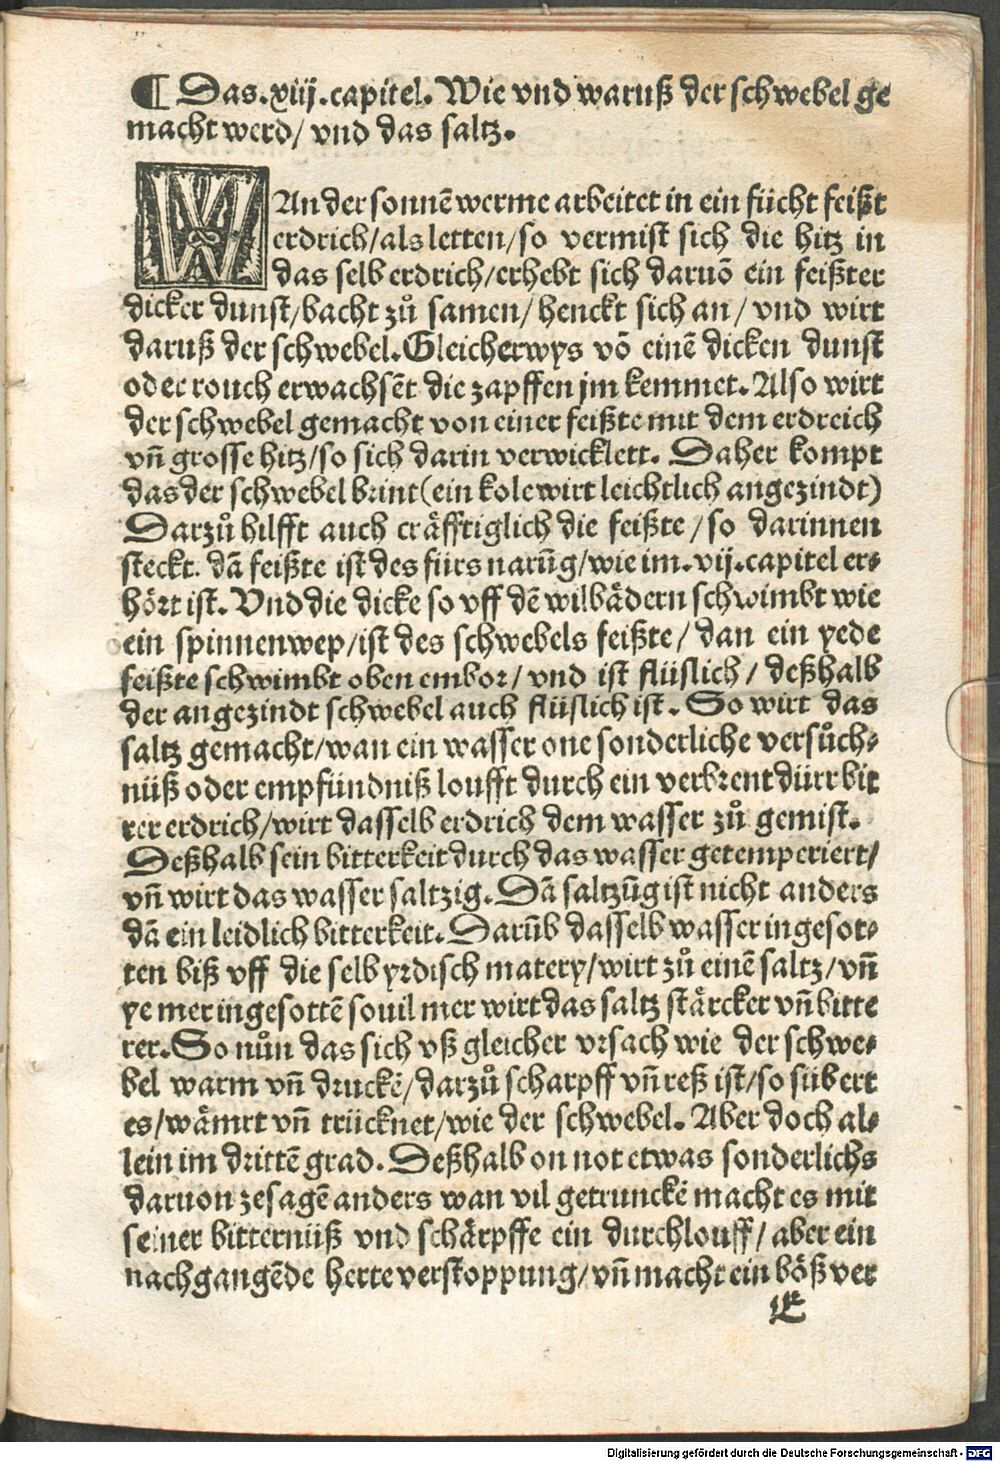 ¶ Das .xiij. capitel. Wie vnd waruß der schwebel ge
macht werd/ vnd das saltz.
WAn der sonnē werme arbeitet in ein fücht feißt
erdrich/als letten/so vermist sich die hitz in
das selb erdrich/erhebt sich daruō ein feißter
dicker dunst/bacht zů samen/henckt sich an/ vnd wirt
daruß der schwebel. Gleicherwys vō einē dicken dunst
oder rouch erwachsēt die zapffen jm kemmet. Also wirt
der schwebel gemacht von einer feißte mit dem erdreich
vn̄ grosse hitz/so sich darin verwicklett. Daher kompt
das der schwebel brint(ein kole wirt leichtlich angezindt)
Darzů hilfft auch cräfftiglich die feißte/so darinnen
steckt. dā feißte ist des fürs narūg/wie im .vij. capitel er⸗
hört ist. Vnd die dicke so vff dē wilbädern schwimbt wie
ein spinnenwep/ist des schwebels feißte/ dan ein yede
feißte schwimbt oben embor/ vnd ist flüslich/ deßhalb
der angezindt schwebel auch flüslich ist. So wirt das
saltz gemacht/wan ein wasser one sonderliche versůch⸗
nüß oder empfündnißloufft durch ein verbrent dürr bit
rer erdrich/wirt dasselb erdrich dem wasser zů gemist.
Deßhalb sein bitterkeit durch das wasser getemperiert/
vn̄ wirt das wasser saltzig. Dā saltzūg ist nicht anders
dā ein leidlich bitterkeit. Darūb dasselb wasser ingesot⸗
ten biß vff die selb yrdisch matery/wirt zů einē saltz/vn̄
ye mer ingesottē souil mer wirt das saltz stärcker vn̄ bitte
rer. So nůn das sich vß gleicher vrsach wie der schwe⸗
bel warm vn̄ druckē/darzů scharpff vn̄ reß ist/so sübert
es/wämrt vn̄ trücknet/wie der schwebel. Aber doch al⸗
lein im drittē grad. Deßhalb on not etwas sonderlichs
daruon zesagē anders wan vil getrunckē macht es mit
seiner bitternüß vnd schärpffe ein durchlouff/ aber ein
nachgangēde herte verstoppung/vn̄ macht ein böß ver
E
Digitalisierung gefördert durch die Deutsche Forschungsgemeinschaft - DFG